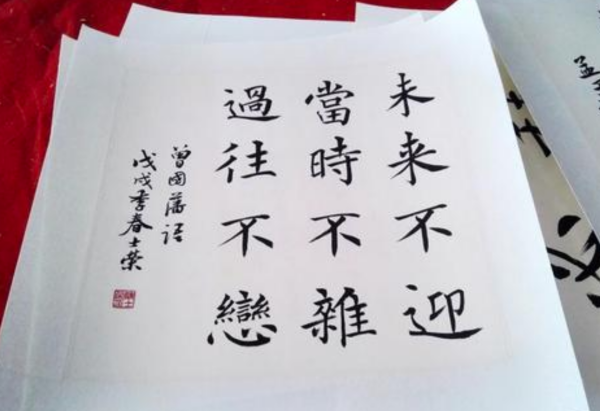 未来不迎
當時不雜
過往不戀
曾國藩语
戊戌季春士荣
孟